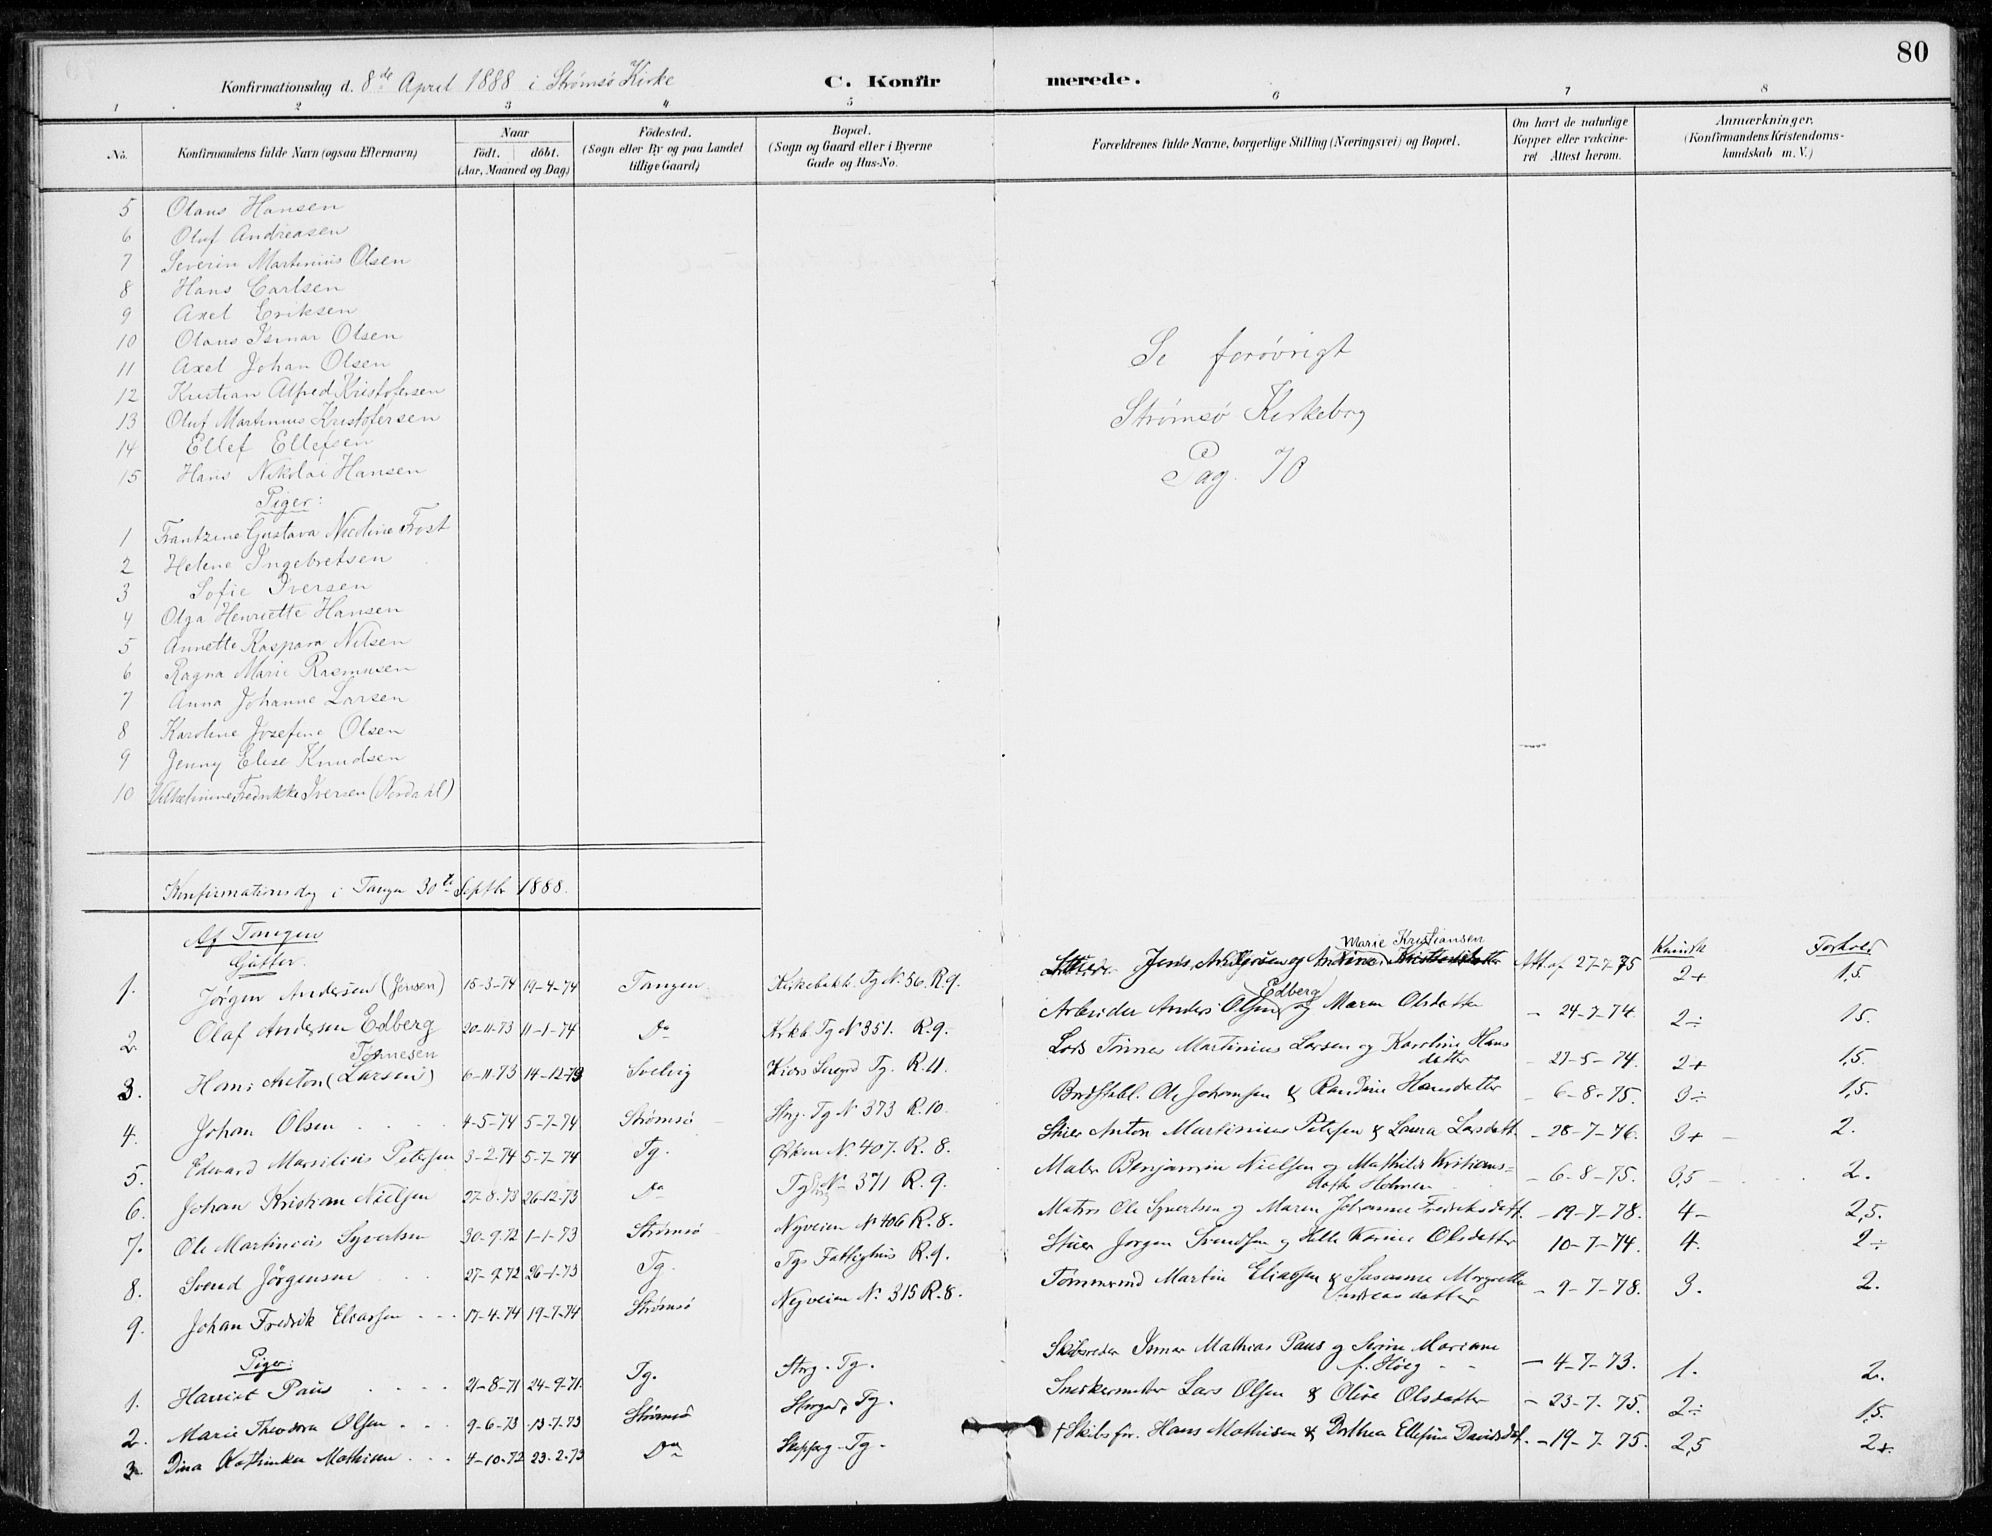 80
Konfirmationsdag d. 8de April 1888 i Strømsø Kirke C. Konfirmerede.
1 2 3 4 5 6 7 8
No. Konfirmandens fulde Navn (ogsaa Efternavn) Naar födt. döbt. (Aar, Maaned og Dag) Födested. (Sogn eller By og paa Landet tillige Gaard) Bopæl. (Sogn og Gaard eller i Byerne Gade og Hus-No. Forældrenes fulde Navne, borgerlige Stilling (Næringsvei) og Bopæl. Om havt de naturlige Kopper eller vakcineret Attest herom. Anmærkninger. (Konfirmandens Kristendomskundskab m. V.)
5 Olaus Hansen
6 Oluf Andreasen
7 Severin Martinius Olsen
8 Hans Carlsen
9 Axel Eriksen
10 Olaus Ismar Olsen
11 Axel Johan Olsen
12 Kristian Alfred Kristofersen
13 Oluf Martinius Kristofersen
14 Ellef Ellefsen
15 Hans Nikolai Hansen
Se forøvrigt
Strømsø Kirkebog
Pag. 70
Piger:
1 Frantzine Gustava Nicoline Frost
2 Helene Ingebretsen
3 Sofie Iversen
4 Olga Henriette Hansen
5 Annette Kaspara Nilsen
6 Ragna Marie Rasmusen
7 Anna Johanne Larsen
8 Karoline Josefine Olsen
9 Jenny Elise Knudsen
10 Vilhelmine Fredrikke Iversen (Nordahl)
Konfirmationsdag i Tangen 30te Septbr 1888.
Af Tangen
Gutter. Kundsk Forhold
Marie Kristiansen
1. Jørgen Andersen (Jensen) 15-3-74 19-4-74 Tangen Kirkebakk. Tg No 36. R.9. Jens og Att. af 27-7-75 2+ 1,5
Edberg
2. Olaf Andersen Edberg 20-11-73 11-1-74 Do Krkb Tg No 351. R.9. Arbeider Anders Olsen og Maren Olsdatter - 24-7-74 2÷ 1,5.
Tønnesen
3. Hans Anton (Larsen) 6-11-73 14-12-73 Svelvig Tg. R.11. Lods Tönnes Martinius Larsen og Karoline Hansdatter - 27-5-74 2+ 1,5.
4. Johan Olsen 4-5-74 5-7-74 Strømsø Strg. Tg No 373 R.10. Bordstabl. Ole Johansen & Randine Hansdatter - 6-8-75. 3÷ 1,5.
5. Edvard Marsilius Petersen 3-2-74 5-7-74 Tg. Ørken No. 407. R.8. Stuer Anton Martinius Petersen & Laura Larsdatt. - 28-7-76. 3+ 2.
6. Johan Kristian Nielsen 27-8-73 26-12-73 Do Tg No 371 R.9. Maler Benjamin Nielsen og Mathilde Kristiansdatter Holmen - 6-8-75. 3,5 2.
7. Ole Martinius Syvertsen 30-9-72 1-1-73 Strømsø Nyveien No 406 R.8. Matros Ole Syvertsen og Maren Johanne Fredriksdatt. - 19-7-78. 4- 2,5.
8. Svend Jørgensen 27-9-72 26-1-73 Tg. Tgs Fattighus R.9. Stuer Jørgen Svendsen og Helle Karine Olsdatter 10-7-74. 4. 2÷
9. Johan Fredrik Eliassen 17-4-74 19-7-74 Strømsø Nyveien No. 315 R.8. Tömmermd Martin Eliassen & Susanne Margrethe Andreasdatter - 9-7-78. 3. 2.
Piger:
1. Harriet Paus 21-8-71 24-9-71. Tg. Strg. Tg. Skibsreder Ismar Mathias Paus og Serine Mariane f. Høeg - 4-7-73. 1. 2.
2. Marie Theodora Olsen 9-6-73 13-7-73 Strømsø Storgad, Tg. Snekermester Lars Olsen & Oline Olsdatter - 23-7-75. 2÷ 1,5.
3. Dina Kathinka Mathisen 4-10-72 23-2-73 Do Skipperg. Tg. † Skibsfør. Hans Mathisen & Dorthea Ellefine Davidsdat. - 19-7-75. 2,5 2+